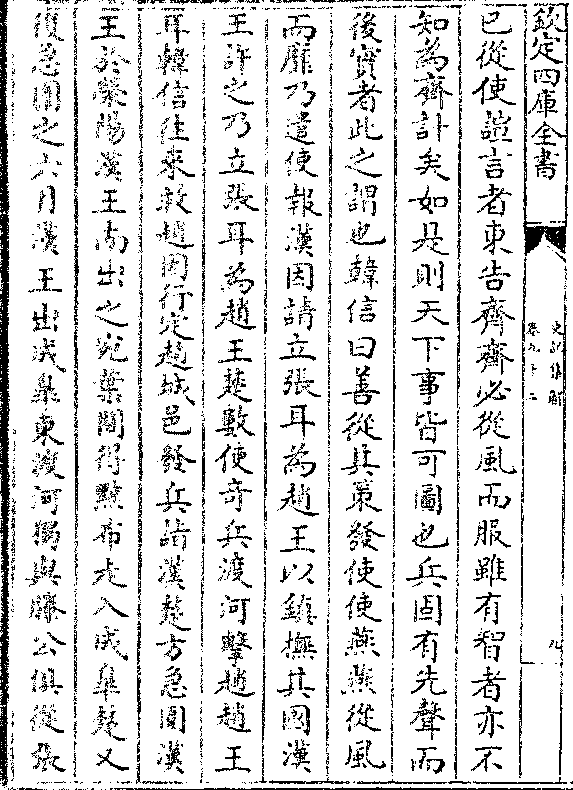 欽定四庫全書
史記集解
卷九十二
九
已從使諠言者東告齊齊必從風而服雖有智者亦不
知為齊計矣如是則天下事皆可圖也兵固有先聲而
後實者此之謂也韓信曰善從其策發使使燕燕從風
而靡乃遣使報漢因請立張耳為趙王以鎮撫其國漢
王許之乃立張耳為趙王楚數使奇兵渡河擊趙趙王
耳韓信往來救趙因行定趙城邑發兵詣漢楚方急圍漢
王於滎陽漢王南出之宛葉間得黥布走入成臯楚又
復急圍之六月漢王出成臯東渡河獨與滕公俱從張